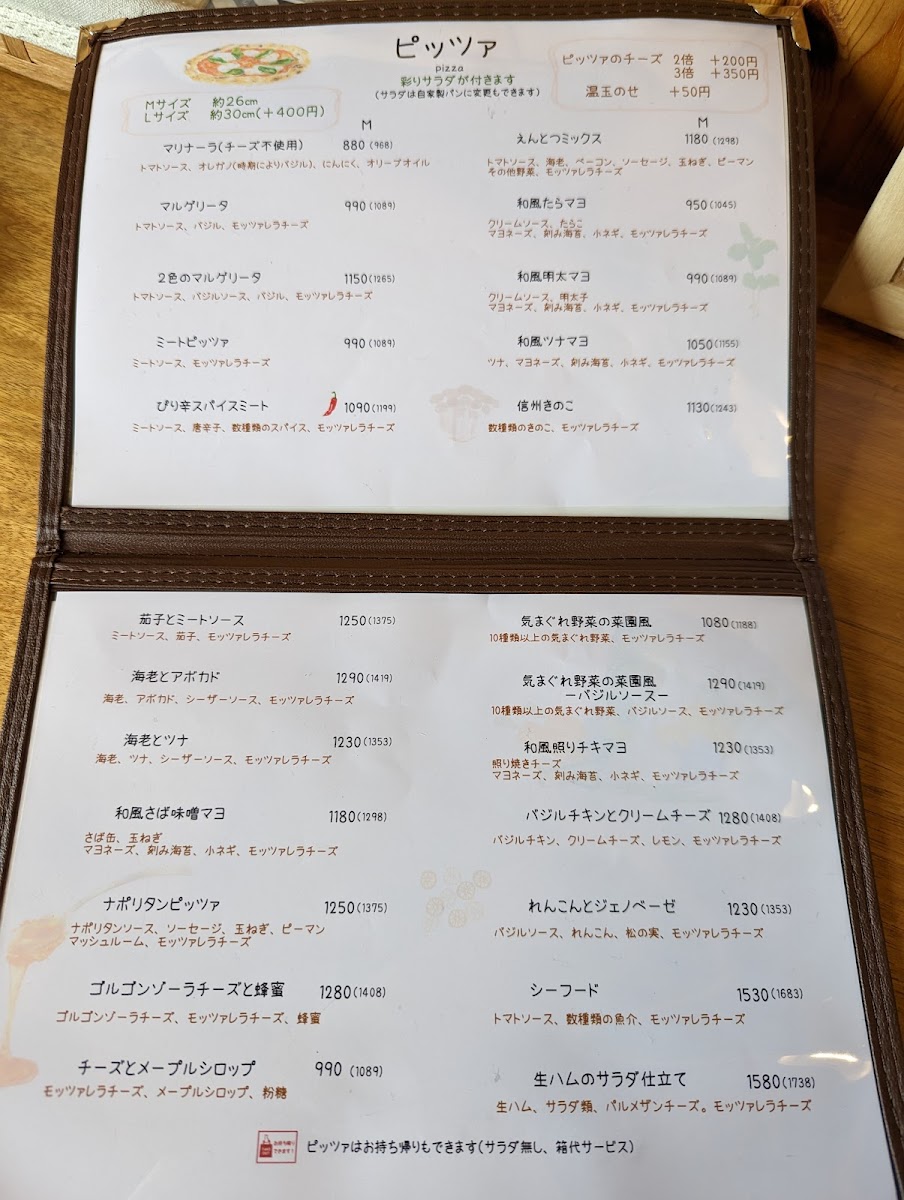 ピッツァ
pizza
彩りサラダが付きます
(サラダは自家製パンに変更もできます)
Mサイズ 約26cm
Lサイズ 約30cm(+400円)
ピッツァのチーズ 2倍 +200円
3倍 +350円
温玉のせ +50円
M
マリナーラ(チーズ不使用) 880 (968)
トマトソース、オレガノ(時期によりバジル)、にんにく、オリーブオイル
マルゲリータ 990(1089)
トマトソース、バジル、モッツァレラチーズ
2色のマルゲリータ 1150(1265)
トマトソース、バジルソース、バジル、モッツァレラチーズ
ミートピッツァ 990(1089)
ミートソース、モッツァレラチーズ
ぴり辛スパイスミート 1090(1199)
ミートソース、唐辛子、数種類のスパイス、モッツァレラチーズ
M
えんとつミックス 1180(1298)
トマトソース、海老、ベーコン、ソーセージ、玉ねぎ、ピーマン
その他野菜、モッツァレラチーズ
和風たらマヨ 950(1045)
クリームソース、たらこ
マヨネーズ、刻み海苔、小ネギ、モッツァレラチーズ
和風明太マヨ 990(1089)
クリームソース、明太子
マヨネーズ、刻み海苔、小ネギ、モッツァレラチーズ
和風ツナマヨ 1050(1155)
ツナ、マヨネーズ、刻み海苔、小ネギ、モッツァレラチーズ
信州きのこ 1130(1243)
数種類のきのこ、モッツァレラチーズ
茄子とミートソース 1250(1375)
ミートソース、茄子、モッツァレラチーズ
海老とアボカド 1290(1419)
海老、アボカド、シーザーソース、モッツァレラチーズ
海老とツナ 1230(1353)
海老、ツナ、シーザーソース、モッツァレラチーズ
和風さば味噌マヨ 1180(1298)
さば缶、玉ねぎ
マヨネーズ、刻み海苔、小ネギ、モッツァレラチーズ
ナポリタンピッツァ 1250(1375)
ナポリタンソース、ソーセージ、玉ねぎ、ピーマン
マッシュルーム、モッツァレラチーズ
ゴルゴンゾーラチーズと蜂蜜 1280(1408)
ゴルゴンゾーラチーズ、モッツァレラチーズ、蜂蜜
チーズとメープルシロップ 990 (1089)
モッツァレラチーズ、メープルシロップ、粉糖
気まぐれ野菜の菜園風 1080(1188)
10種類以上の気まぐれ野菜、モッツァレラチーズ
気まぐれ野菜の菜園風 1290(1419)
ーバジルソースー
10種類以上の気まぐれ野菜、バジルソース、モッツァレラチーズ
和風照りチキマヨ 1230(1353)
照り焼きチーズ
マヨネーズ、刻み海苔、小ネギ、モッツァレラチーズ
バジルチキンとクリームチーズ 1280(1408)
バジルチキン、クリームチーズ、レモン、モッツァレラチーズ
れんこんとジェノベーゼ 1230(1353)
バジルソース、れんこん、松の実、モッツァレラチーズ
シーフード 1530(1683)
トマトソース、数種類の魚介、モッツァレラチーズ
生ハムのサラダ仕立て 1580(1738)
生ハム、サラダ類、パルメザンチーズ。モッツァレラチーズ
お持ち帰り
できます!
ピッツァはお持ち帰りもできます(サラダ無し、箱代サービス)